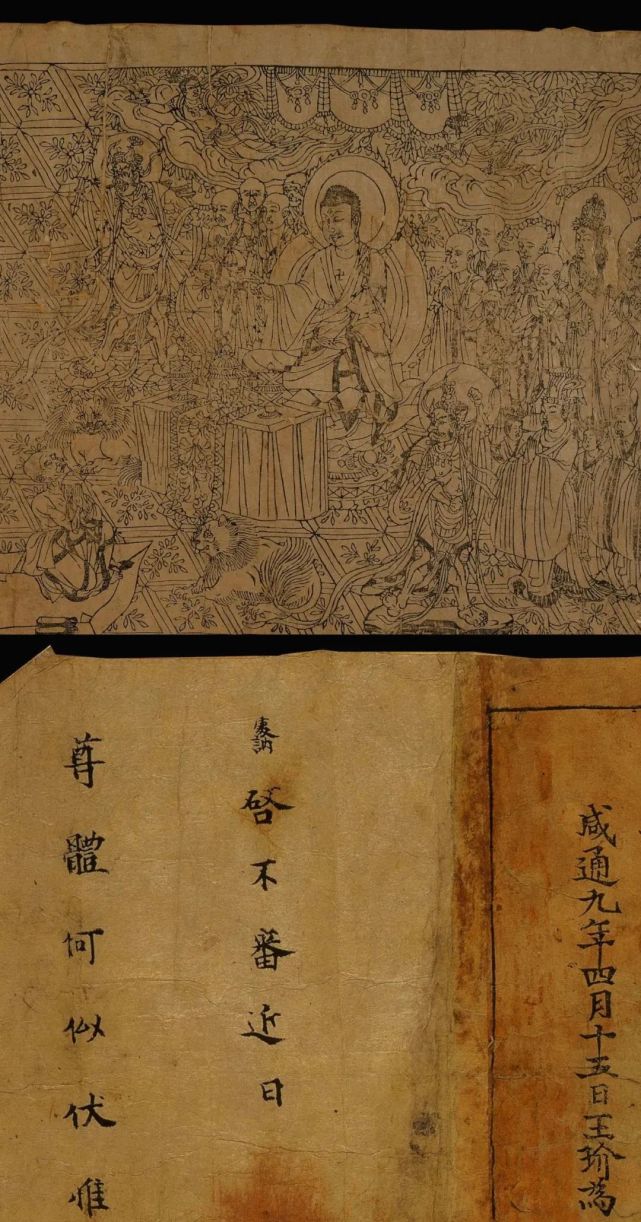 咸通九年四月十五日王玠為
啓不審近日
尊體何似伏惟